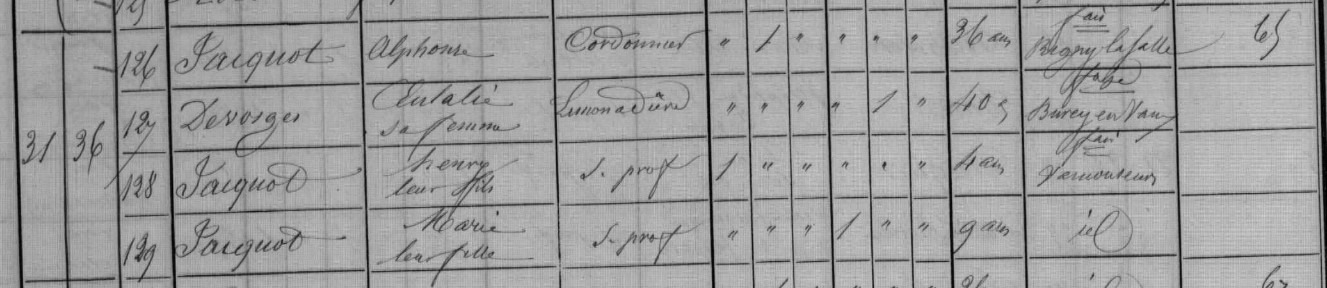 126 Jacquot Alphonse Cordonnier " 1 " " " " 36 ans Pagny-la-salle 65
127 Devosges Eulalie sa femme Limonadière " " " " 1 " 40 a Burey en Vaux
31 36 128 Jacquot henry leur fils s. prof 1 " " " " " 4 ans
129 Jacquot Marie leur fille s. prof " " " 1 " " 9 ans id